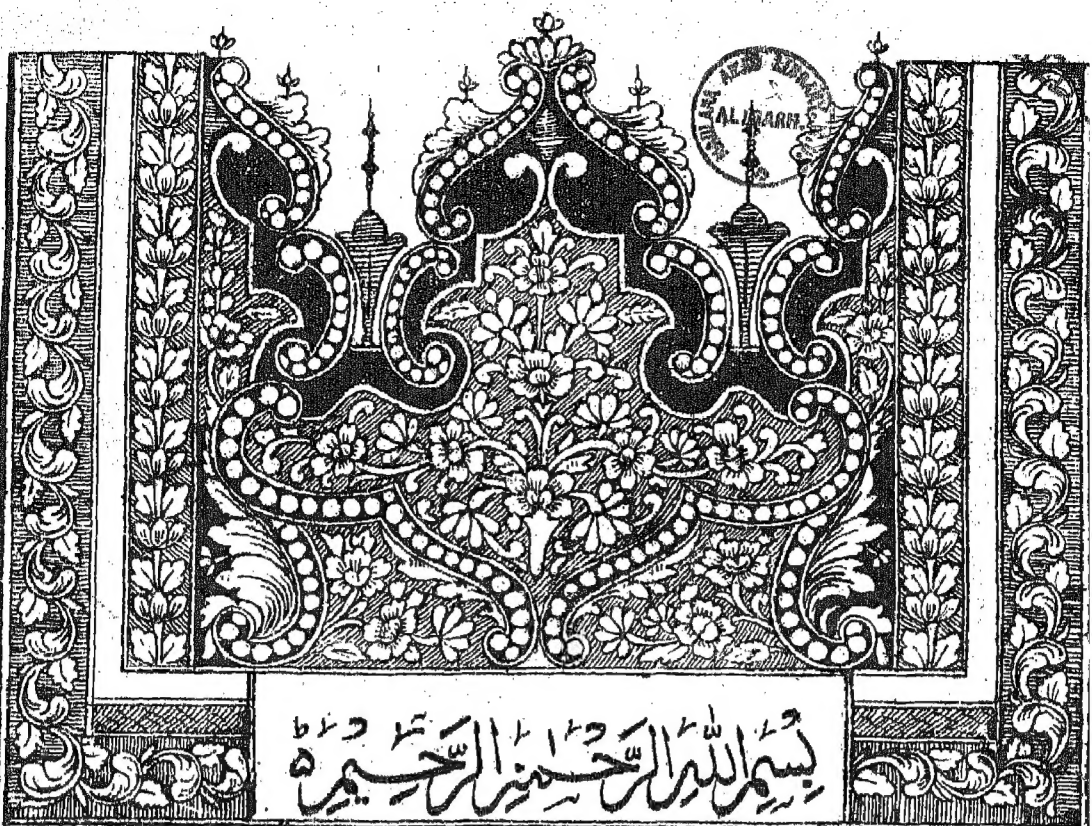 ALIGARH.
بِسْمِ اللّٰهِ الرَّحْمٰنِ الرَّحِيْمِ